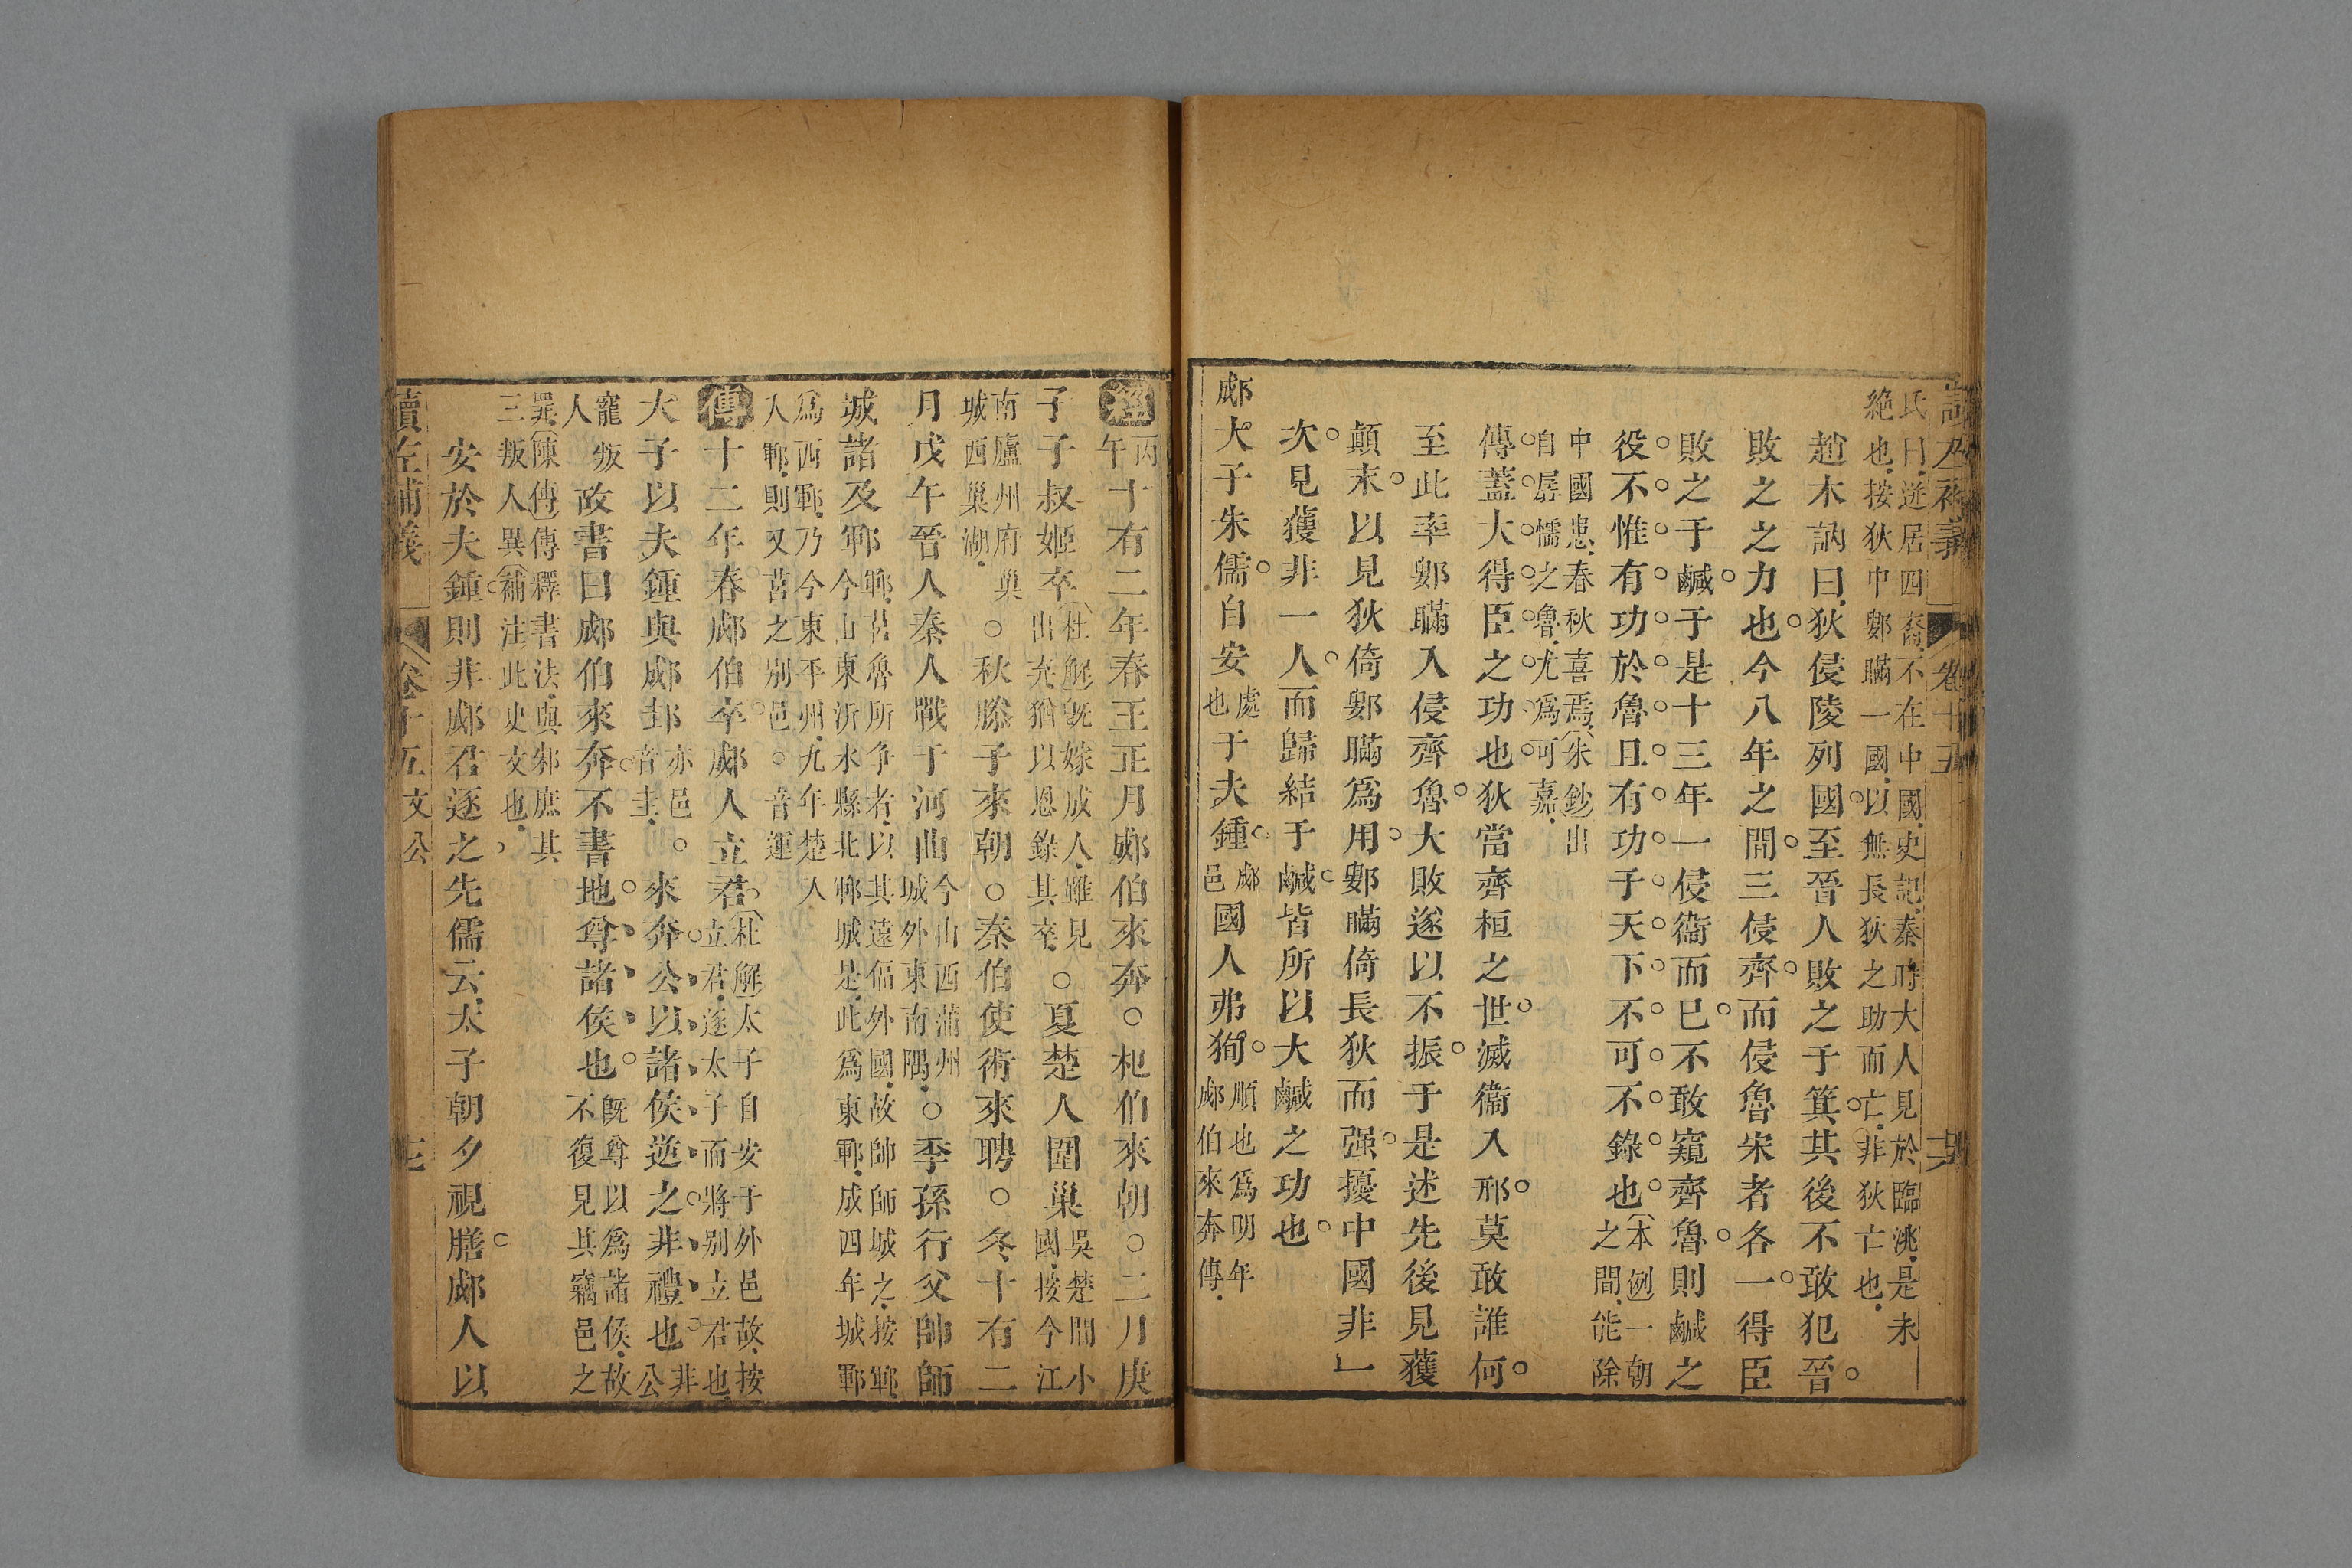 氏曰逬居四裔不在中國史記秦時大人見於臨洮是未
絶也按狄中鄋瞞一國以無長狄之助而亡非狄亡也
趙木訥曰狄侵陵列國至晉人敗之于箕其後不敢犯晉
敗之之力也今八年之間三侵齊而侵魯宋者各一得臣
敗之于鹹于是十三年一侵衞而已不敢窺齊魯則鹹之
役不惟有功於魯且有功于天下不可不錄也本例一朝
之間能除
中國患春秋喜焉朱鈔出
自孱懦之魯尤爲可嘉
傳蓋大得臣之功也狄當齊桓之世滅衞入邢莫敢誰何
至此率鄋瞞入侵齊魯大敗遂以不振于是述先後見獲
顛末以見狄倚鄋瞞爲用鄋瞞倚長狄而强擾中國非一
次見獲非一人而歸結于鹹皆所以大鹹之功也
郕大子朱儒自安處也于夫鍾郕邑國人弗狥順也爲明年
郕伯來奔傳
經丙午十有二年春王正月郕伯來奔○杞伯來朝○二月庚
子子叔姬卒杜解旣嫁成人雖見
出充猶以恩錄其卒○夏楚人圍巢吳楚間小
國按今江
南廬州府巢
城西巢湖○秋滕子來朝○秦伯使術來聘○冬十有二
月戊午晉人秦人戰于河曲今山西蒲州
城外東南隅○季孫行父帥師
城諸及鄆鄆莒魯所爭者以其遠偪外國故帥師城之按鄆
今山東沂水縣北鄆城是此爲東鄆成四年城鄆
爲西鄆乃今東平州九年楚人
入鄆則又莒之別邑○音運
傳十二年春郕伯卒郕人立君杜解太子自安于外邑故按
立君遂太子而將別立君也
大子以夫鍾與郕邽亦邑○
音圭來奔公以諸侯逆之非禮也非
公
寵叛
人故書曰郕伯來奔不書地尊諸侯也旣尊以爲諸侯故
不復見其竊邑之
罪陳傳傳釋書法與邾庶其
三叛人異補注此史文也
安於夫鍾則非郕君逐之先儒云太子朝夕視膳郕人以
讀左補義 卷十五 文公